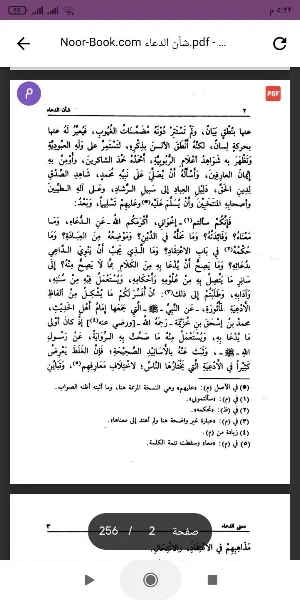 ٥:٢٢ م
Noor-Book.com شأن الدعاء.pdf - ...
PDF
م
٢ شأن الدعاء
عنها بنطق بيان، ولم تستتر دونه مضمنات الغيوب، فيعبر له عنها
بحركة لسان، لكنه أنطق الألسن بذكره، لتستمر على وله العبودية
وتظهر به شواهد أعلام الربوبية، أحمده حمد الشاكرين، وأومن به
إيمان العارفين، وأسأله أن يصلي على نبيه محمد، شاهد الصدق
لدين الحق، ودليل العباد إلى سبيل الرشاد، وعلى آله الطيبين
وأصحابه المنتخبين وأن يسلم عليه(*) وعليهم تسليماً، وبعد:
فإنكم سألتم(١) إخواني، أكرمكم الله - عن الدعاء، وما
معناه؟ وفائدته؟ وما محله في الدين؟ وموضعه من العبادة؟ وما
حكمه(٢) في باب الاعتقاد؟ وما الذي يجب أن ينوي الداعي
بدعائه؟ وما يصح أن يدعا به من الكلام مما لا يصح منه؟ إلى
سائر ما يتصل به من علومه وأحكامه، ويستعمل فيه من سننه،
وآدابه، وطلبتم إلى ذلك(٣): أن أفسر لكم ما يشكل من ألفاظ
الأدعية المأثورة، عن النبي - ﷺ - التي جمعها إمام أهل الحديث،
محمد بن إسحق بن خزيمة - رحمه الله - [ورضي عنه(٤)] إذ كان أولى
ما يدعا به، ويستعمل منه ما صحت به الرواية، عن رسول
الله - ﷺ -، وثبت عنه بالأسانيد الصحيحة؛ فإن الغلط يعرض
كثيراً في الأدعية التي يختارها الناس؛ لاختلاف معارفهم(٥)، وتباين
(*) في الأصل (م): «عليهم» وهي النسخة المرممة هنا، وما أثبته أظنه الصواب.
(١) في (م): «سألتموني».
(٢) في (ظ): «تحكمه».
(٣) في (م): «عبارة غير واضحة هنا ولم أهتد إلى معناها».
(٤) زيادة من (م).
(٥) في (م): «معا» وسقطت تتمة الكلمة.
صفحة 2 / 256
معنى الدعاء ٣
مذاهبهم في الاعتقاد، والانتحال.